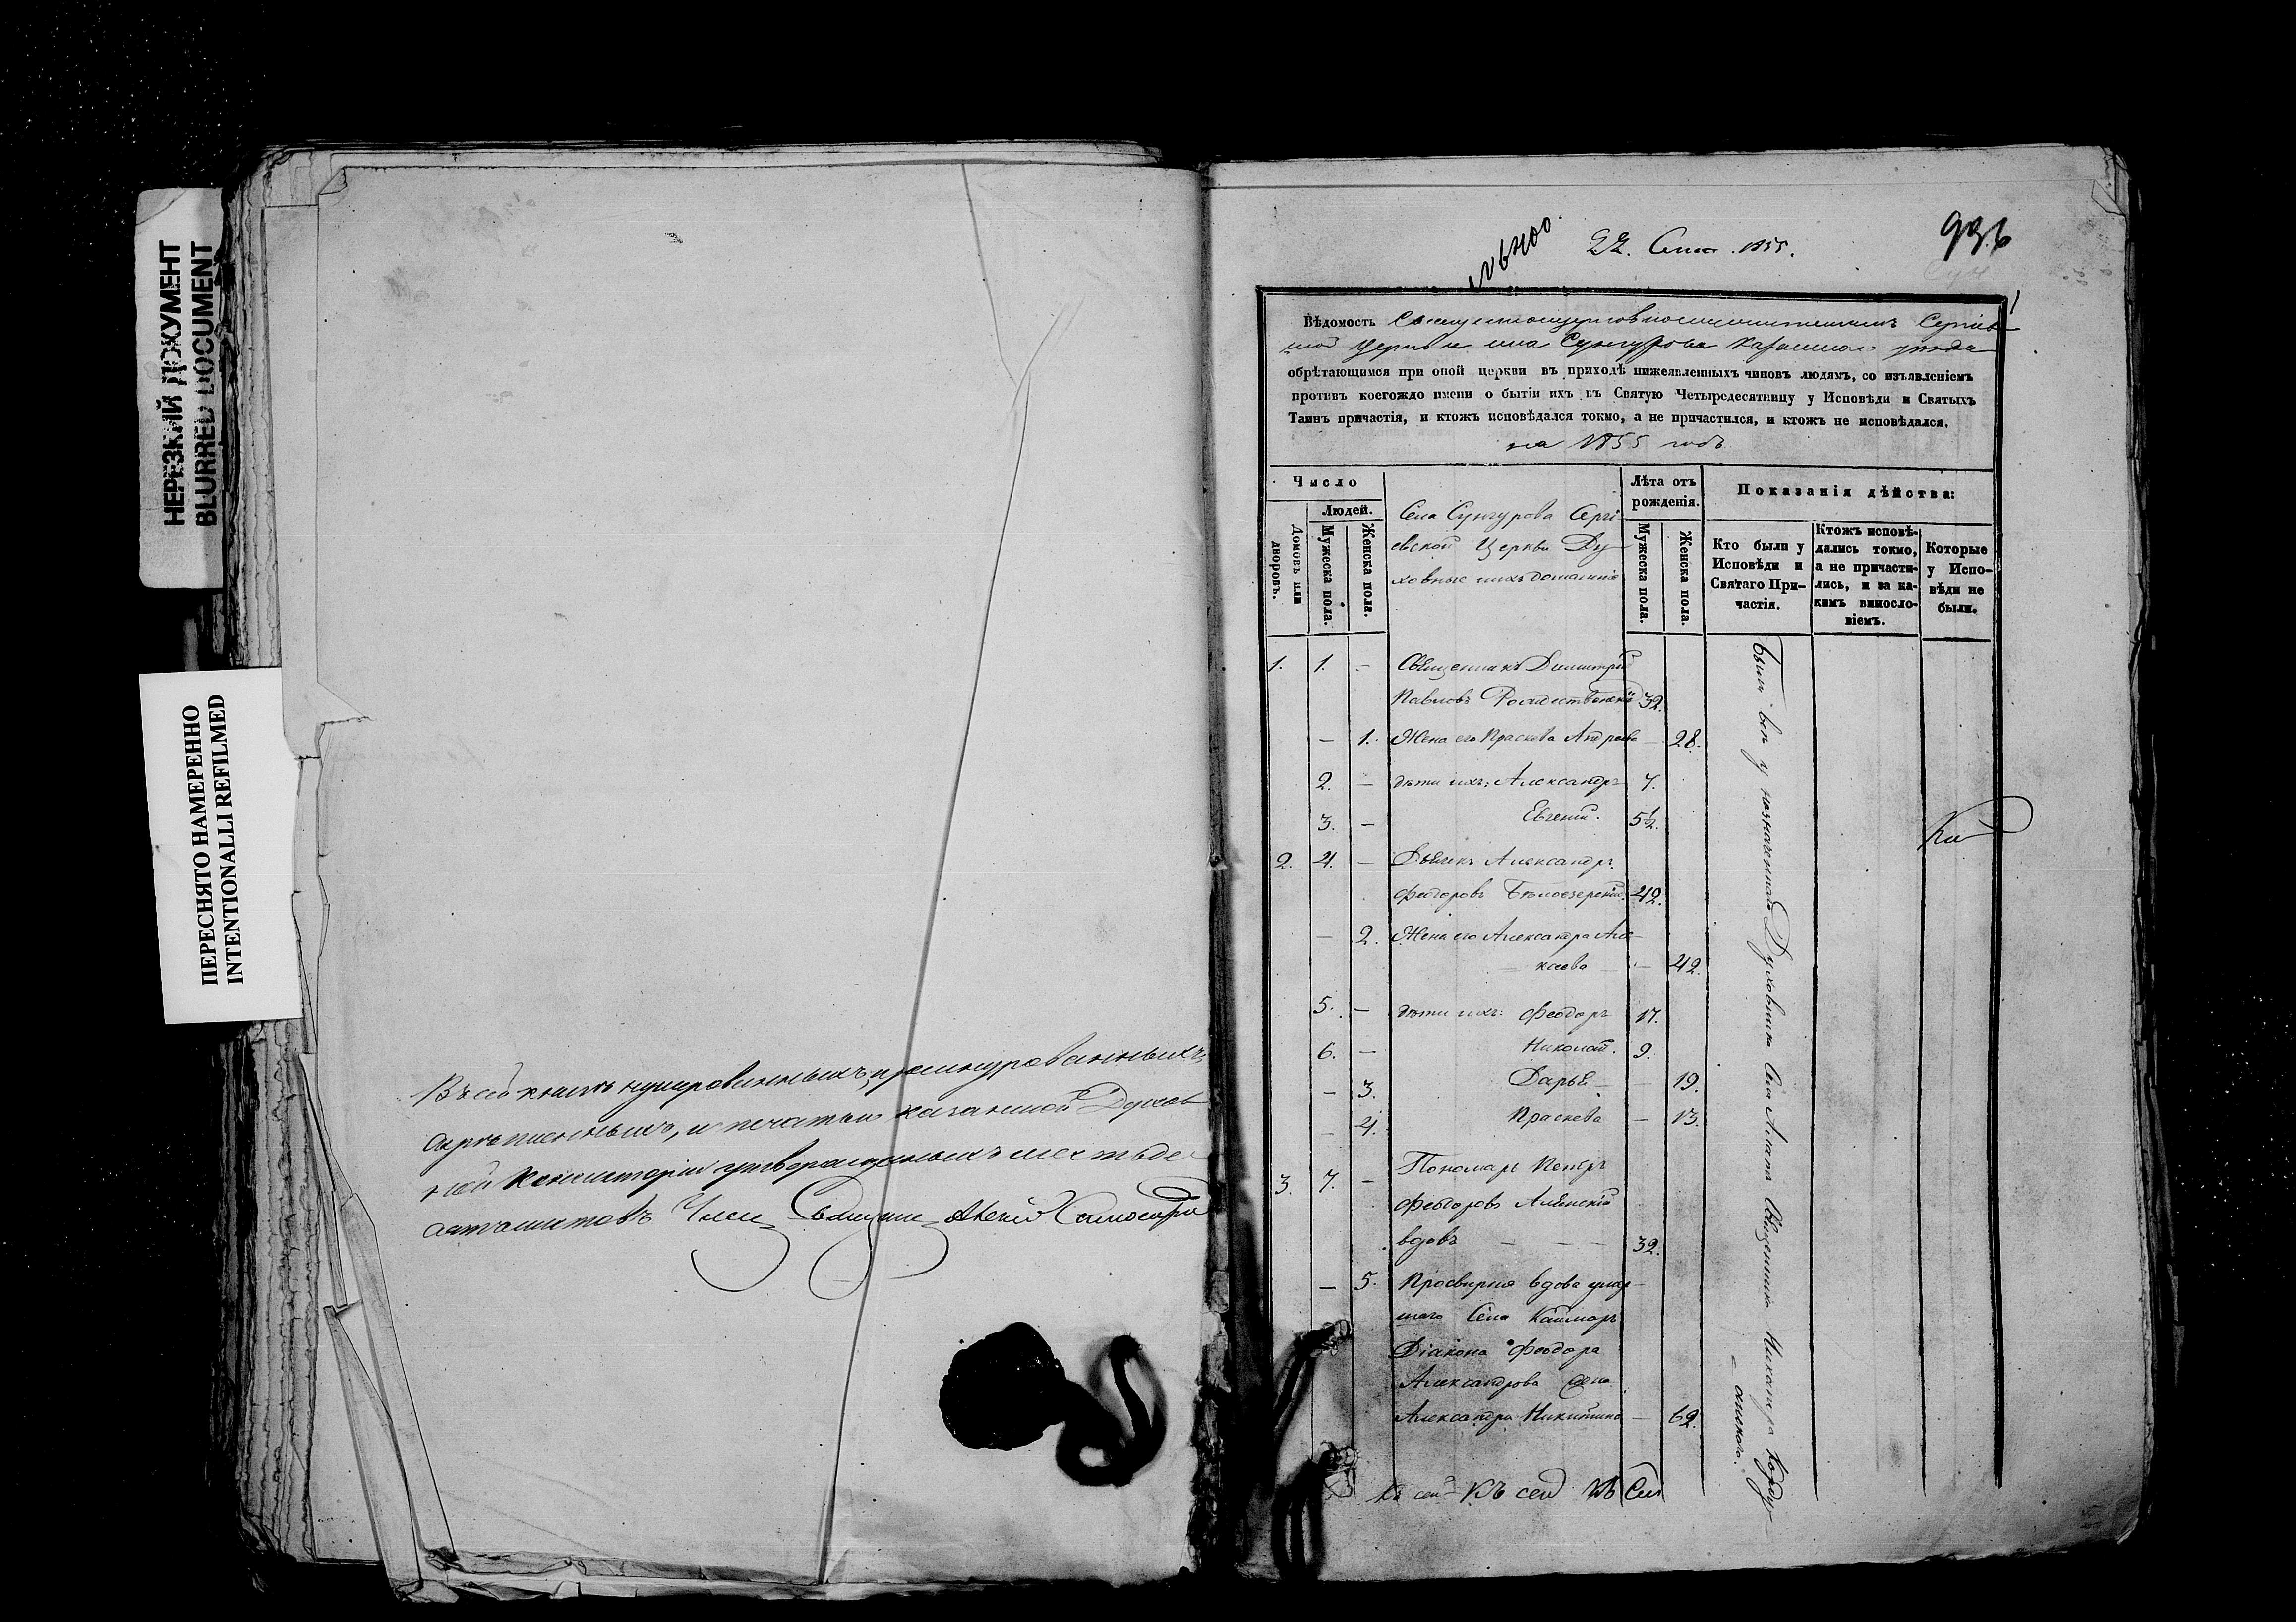 НЕРЕЗКИЙ ДОКУМЕНТ
BLURRED DOCUMENT
ПЕРЕСНЯТО НАМЕРЕННО
INTENTIONALLI REFILMED
Въ сей книгѣ нумерованныхъ, прошнурованныхъ,
скрѣпленныхъ, и печатью казанской Духов
ной Консисторіи утвержденныхъ шестьде
сятъ листовъ
22. 1855.
936
Вѣдомость Священноцерковнослужителямъ Сергіев
ской Церкви села Сунгурова Казанскаго уѣзда
обрѣтающимся при оной церкви въ приходѣ нижеявленныхъ чиновъ людямъ, со изъявленіемъ
противъ коегождо имени о бытіи ихъ въ Святую Четыредесятницу у Исповѣди и Святыхъ
Таинъ причастія, и ктожъ исповѣдался токмо, а не причастился, и ктожъ не исповѣдался.
на 1855 годъ
Число
Домовъ или дворовъ.
Людей.
Мужеска пола.
Женска пола.
Села Сунгурова Сергі
евской Церкви Ду
ховные ихъ домашніе
Лѣта отъ рожденія.
Мужеска пола.
Женска пола.
Показанія дѣйства:
Кто были у
Исповѣди и
Святаго При-
частія.
Ктожъ исповѣ-
дались токмо,
а не причасти-
лись, и за ка-
кимъ винosло-
віемъ.
Которые
у Испо-
вѣди не
были.
1. 1. – Священникъ Димитрій
Павловъ Рождественскій 32.
– 1. Жена его Праскева Андреева – 28.
2. – дѣти ихъ: Александръ 7.
3. – Евгеній. 5½.
2. 4. – Дьячекъ Александръ
Феодоровъ Бѣлоезерскій 42.
– 2. Жена его Александра Але
ксѣева – 42.
5. – дѣти ихъ: Феодоръ 17.
6. – Николай. 9.
– 3. Дарья – 19.
– 4. Праскева – 13.
3. 7. – Пономарь Петръ
Феодоровъ
вдовъ – – – 32.
– 5. Просвирня вдова умер
шаго Села Каймаръ
Діакона Феодора
Александрова жена
Александра Никитина – 62.
Были всѣ у назначеннаго Духовника Села Алатъ Священника Никанора
Къ сей Къ сей Къ Сей